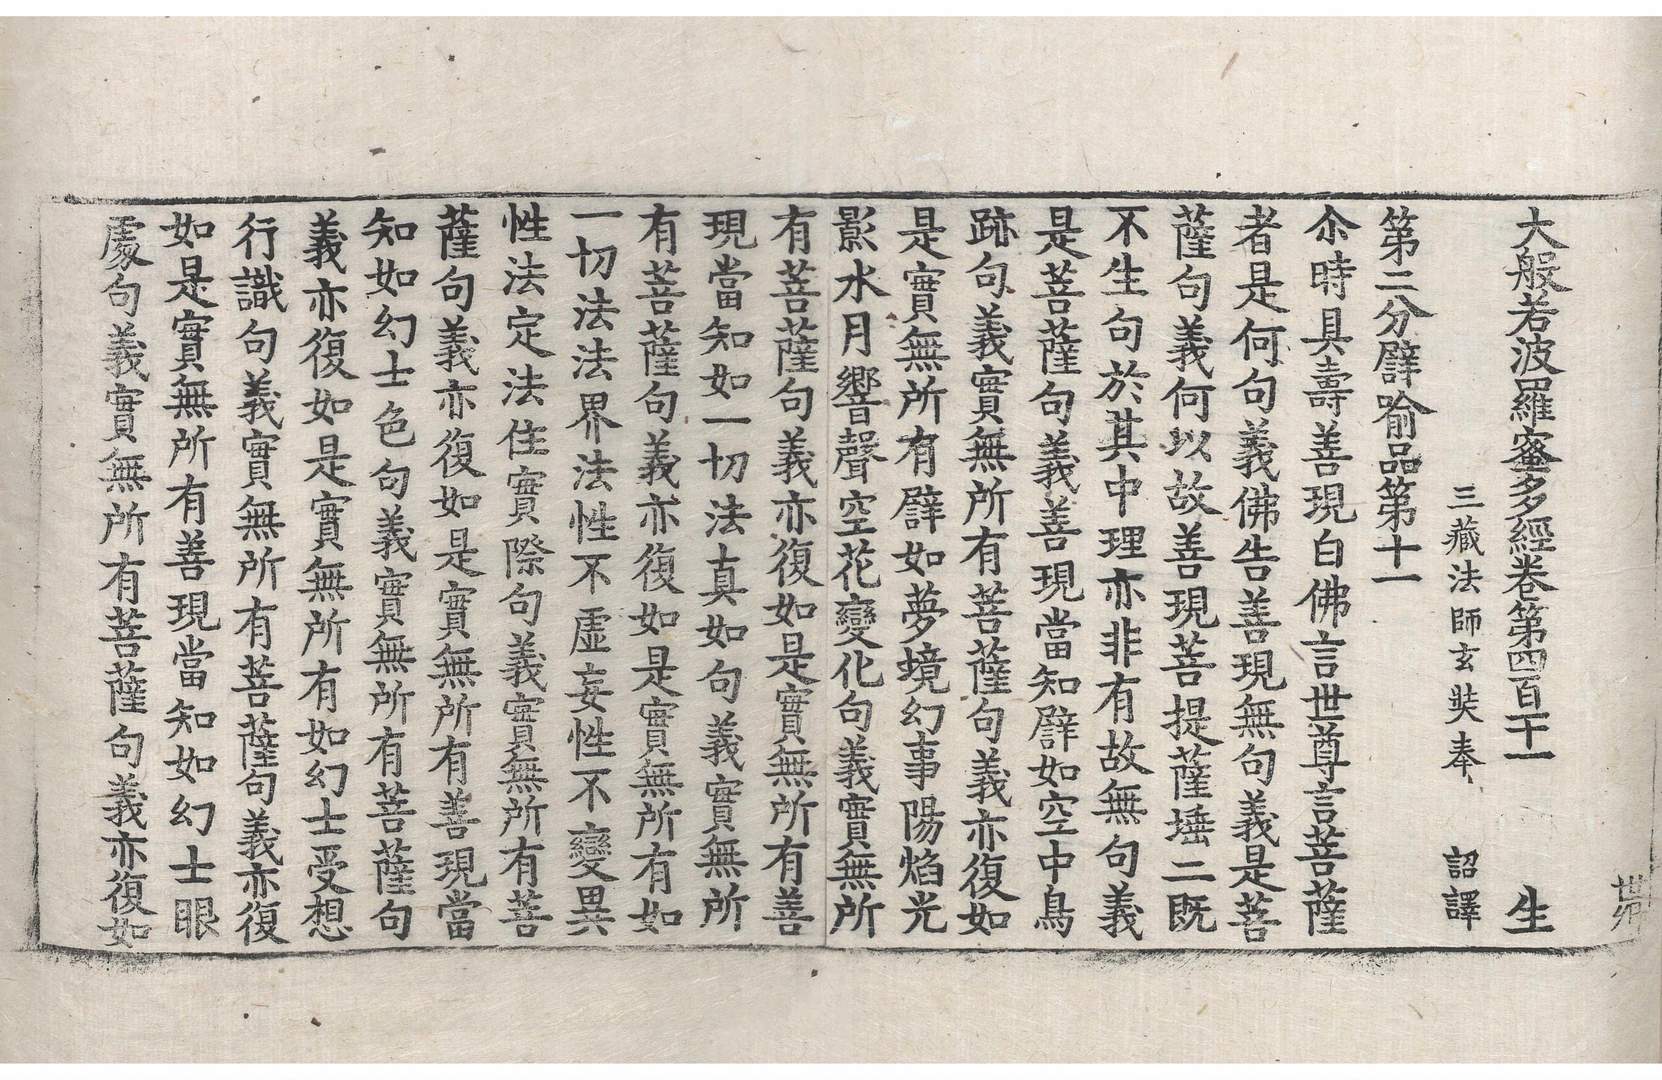 大般若波羅蜜多經卷第四百十一 生
三藏法師玄奘奉 詔譯
第二分譬喻品第十一
尒時具壽善現白佛言世尊言菩薩
者是何句義佛告善現無句義是菩
薩句義何以故善現菩提薩埵二既
不生句於其中理亦非有故無句義
是菩薩句義善現當知譬如空中鳥
跡句義實無所有菩薩句義亦復如
是實無所有譬如夢境幻事陽焰光
影水月響聲空花變化句義實無所
有菩薩句義亦復如是實無所有善
現當知如一切法真如句義實無所
有菩薩句義亦復如是實無所有如
一切法法界法性不虛妄性不變異
性法定法住實際句義實無所有菩
薩句義亦復如是實無所有善現當
知如幻士色句義實無所有菩薩句
義亦復如是實無所有如幻士受想
行識句義實無所有菩薩句義亦復
如是實無所有善現當知如幻士眼
處句義實無所有菩薩句義亦復如